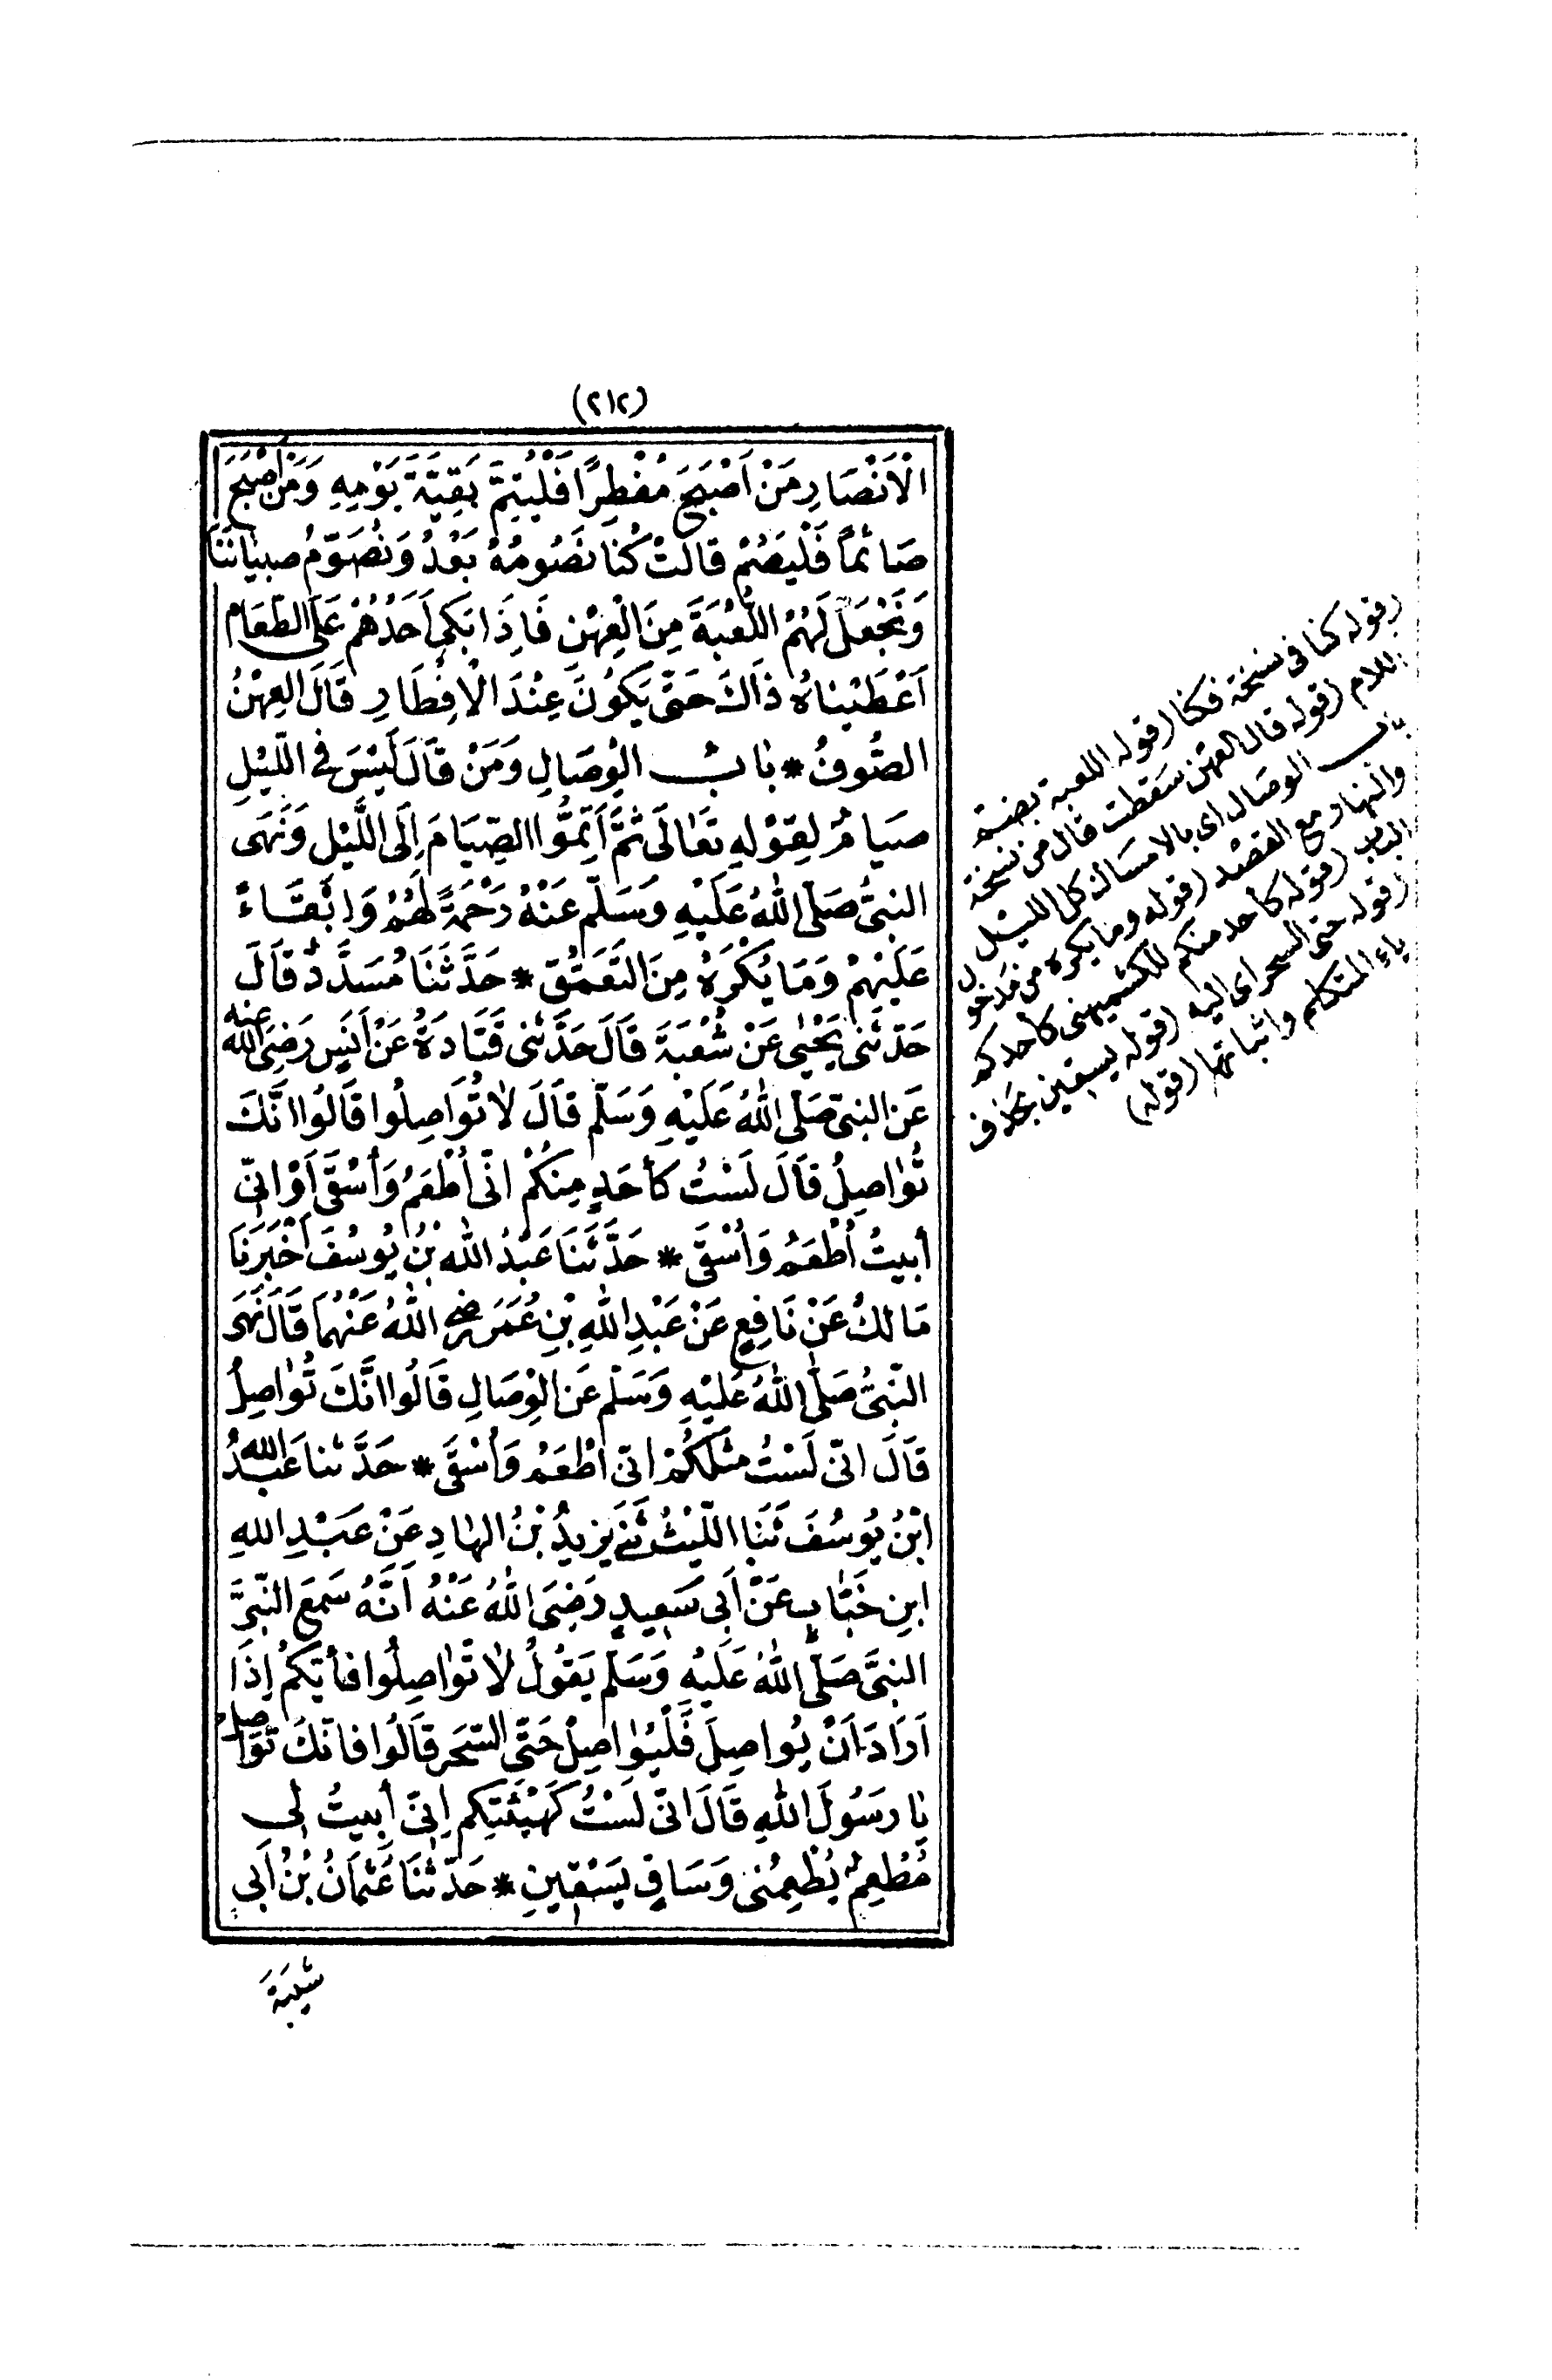 (٢١٢)
الْاَنْصَارِ مَنْ اَصْبَحَ مُفْطِرًا فَلْيُتِمَّ بَقِيَّةَ يَوْمِهِ وَمَنْ اَصْبَحَ
صَائمًا فَلْيَصُمْ قالَتْ كُنَّا نَصُومُهُ بَعْدُ وَنُصَوِّمُ صِبْيَانَنَا
وَنَجْعَلُ لَهُمُ اللُّعْبَةَ مِنَ الْعِهْنِ فَاِذَا بَكَى اَحَدُهُمْ عَلَى الطَّعَامِ
اَعْطَيْنَاهُ ذَاكَ حَتَّى يَكُونَ عِنْدَ الْاِفْطَارِ قَالَ العِهْنُ
الصُّوفُ * بابُ الْوِصَالِ وَمَنْ قَالَ لَيْسَ فِى اللَّيْلِ
صِيَامٌ لِقَوْلِهِ تَعَالَى ثُمَّ اَتِمُّوا الصِّيَامَ اِلَى اللَّيْلِ وَنَهَى
النبىُّ صَلَّى اللّٰهُ عَلَيْهِ وَسَلَّم عَنْهُ رَحْمَةً لَهُمْ وَاِبْقَاءً
عَلَيْهِمْ وَمَا يُكْرَهُ مِنَ التَّعَمُّقِ * حَدَّثَنَا مُسَدَّدٌ قَالَ
حَدّثَنى يَحْيٰى عَنْ شُعْبَةَ قَالَ حَدَّثَنى قَتَادَةُ عَنْ اَنَسٍ رَضِىَ اللّٰه عنه
عَن النبىّ صَلَّى اللّٰهُ عَلَيْهِ وَسَلّم قَالَ لا تُوَاصِلُوا قَالُوا انَّكَ
تُوَاصِلُ قَالَ لَسْتُ كأحَدٍ مِنكُمْ انّى أُطْعَمُ وَأُسْقَى اَوْ انّى
أبيتُ أُطْعَمُ وَأُسْقَى * حَدَّثَنَا عَبْدُ اللّٰه بْنُ يُوسُفَ اَخْبَرَنَا
مَالكٌ عَنْ نَافِعٍ عَنْ عَبْدِ اللّٰهِ بْنِ عُمَرَ رضى اللّٰهُ عَنْهُمَا قَالَ نَهَى
النّبىُّ صَلَّى اللّٰهُ عَلَيْهِ وَسَلّم عَن الْوِصَالِ قَالُوا انَّكَ تُوَاصِلُ
قَالَ انّى لَسْتُ مثْلَكُمْ انّى اُطْعَمُ وَأُسْقَى * حَدَّثنا عَبْدُ اللّٰه
ابْنُ يُوسُفَ ثَنَا اللَّيْثُ ثَنى يَزيدُ بْنُ الهَادِ عَنْ عَبْدِ اللّٰهِ
ابنِ خَبَّابٍ عَنْ اَبى سَعِيدٍ رَضِىَ اللّٰهُ عَنْهُ اَنَّهُ سَمِعَ النّبىَّ
النبىَّ صَلَّى اللّٰهُ عَلَيْهِ وَسَلّم يَقُولُ لا تُوَاصِلُوا فأيّكُمْ اِذَا
اَرَادَ اَنْ يُوَاصِلَ فَلْيُوَاصِلْ حَتَّى السَّحَرِ قَالُوا فانّكَ تُوَاصِلُ
يا رَسُولَ اللّٰهِ قَالَ انّى لَسْتُ كَهَيْئَتِكم اِنّى أبيتُ لى
مُطْعِمٌ يُطْعِمُنى وَسَاقٍ يَسْقينِ * حَدّثَنَا عُثْمَانُ بْنُ اَبى
شَيْبَةَ
(قوله كنا فى نسخة فكنا (قوله اللعبة بضم
اللام (قوله قال العهن سقطت قال من نسخة
باب الوصال اى بالامساك كل الليل
والنهار مع القصد (قوله وما يكره من
(قوله كاحد منكم للكشميهنى كاحدكم
(قوله حتى السحر اى اليه (قوله يسقين بحذف
ياء المتكلم واثباتها (قوله)